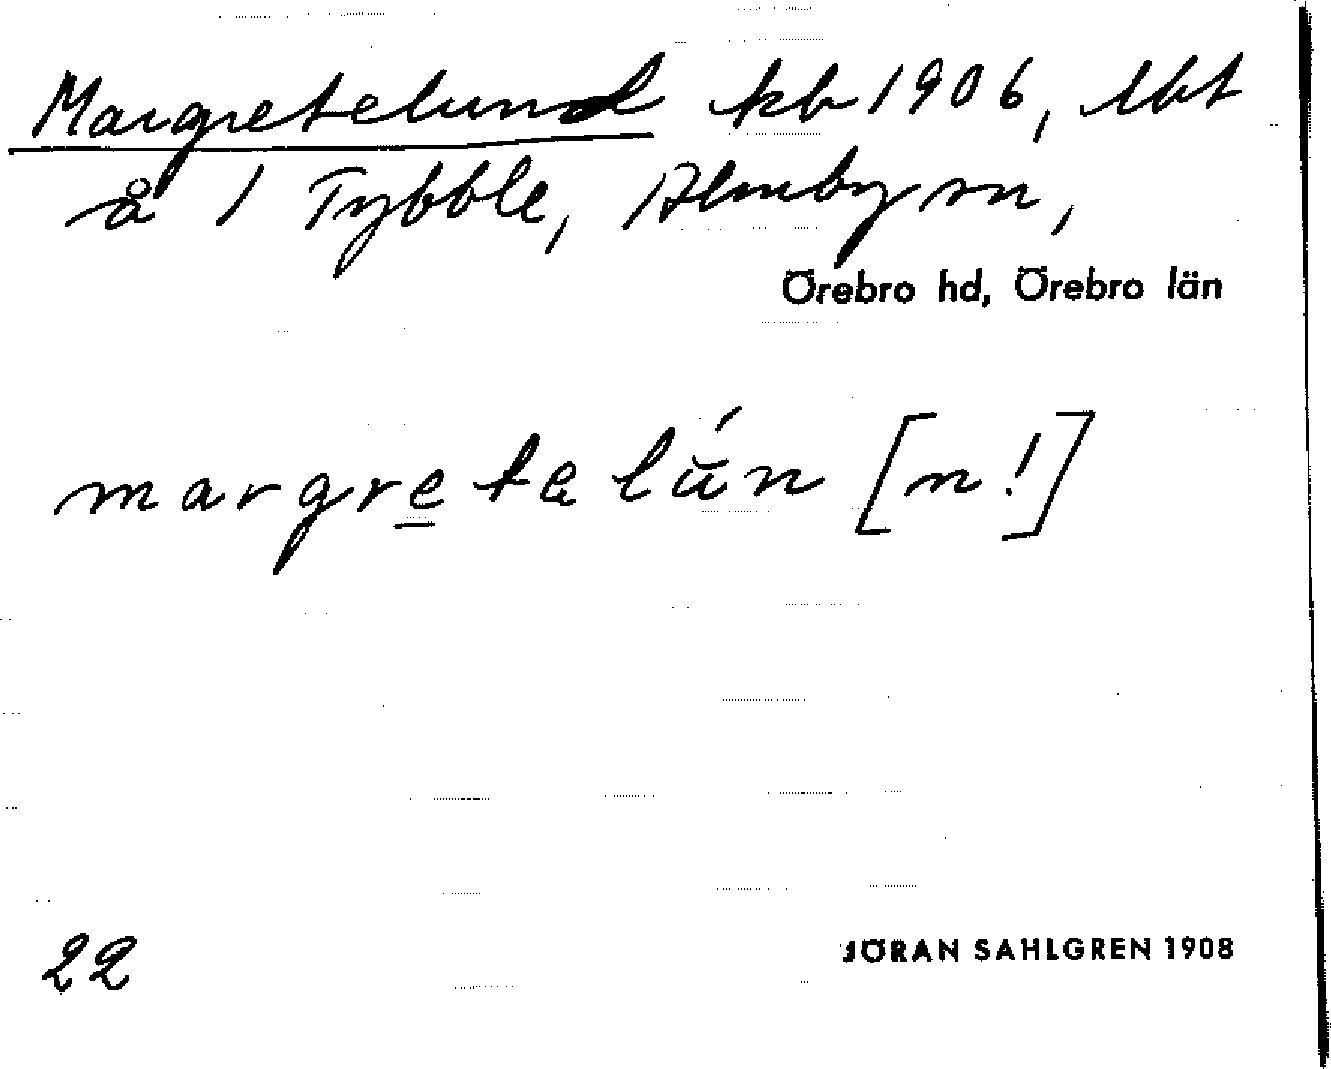 Margretelund kb 1906, lht
å 1 Tybble, Almby sn,
Örebro hd, Örebro län
margretalŭ́n [n!]
22
JÖRAN SAHLGREN 1908